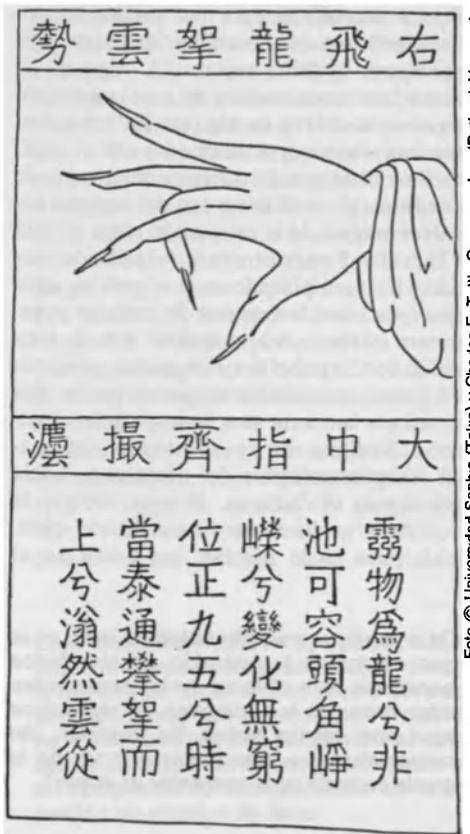 右飛龍拏雲勢
大中指齊撮灋
靈物爲龍兮非
池可容頭角崢
嶸兮變化無窮
位正九五兮時
當泰通攀拏而
上兮滃然雲從